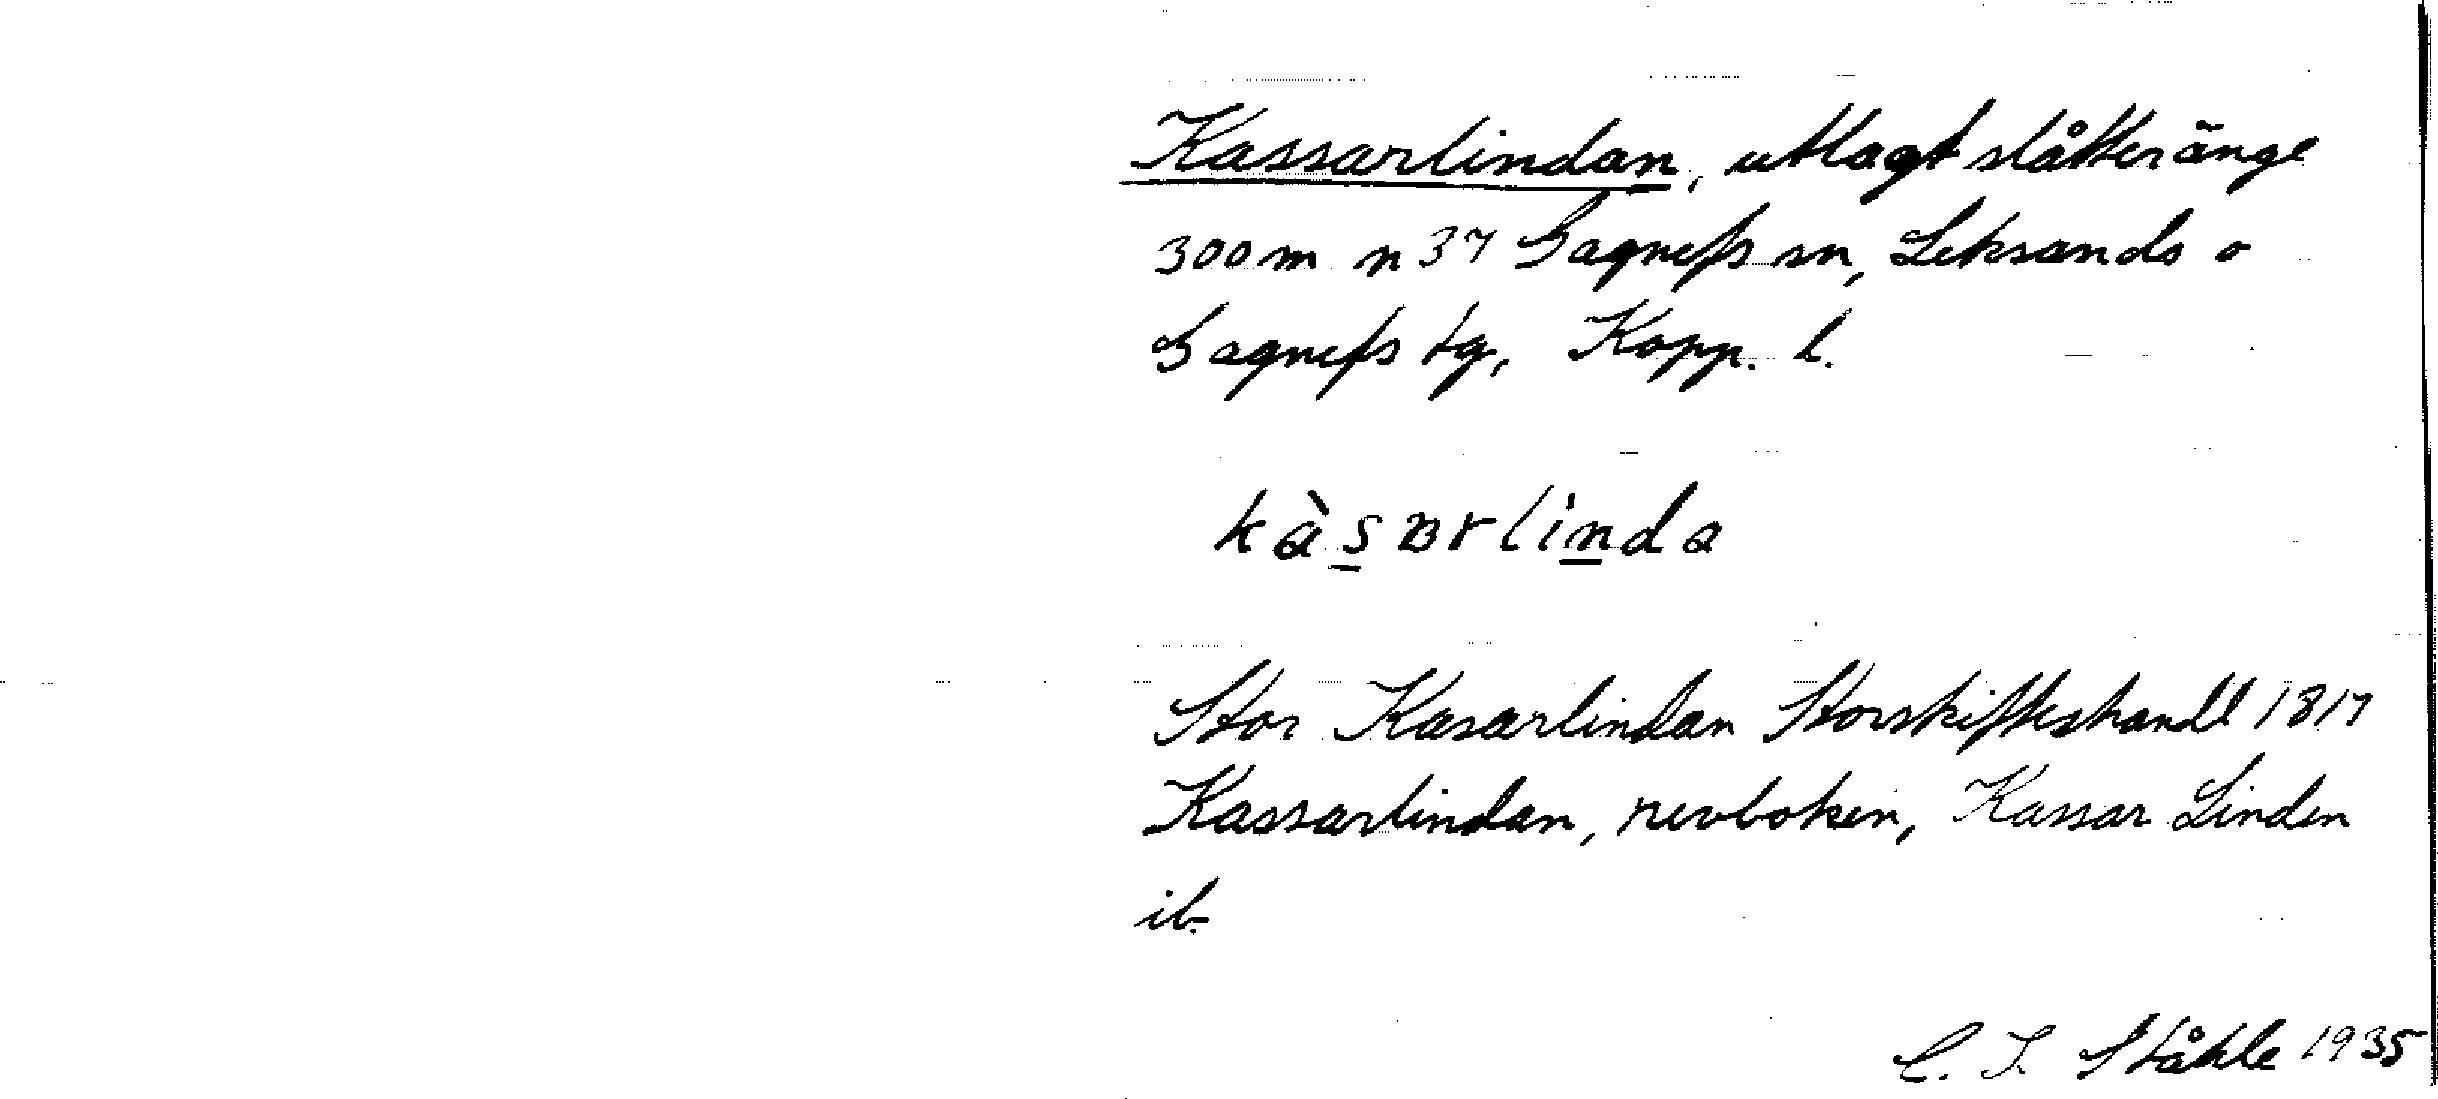 Kassarlindan, utlagt slåtteränge
300 m n 37 Gagnefs sn, Leksands o
Gagnefs tg, Kopp. l.
kàsɐrlinda
Stor Kasarlindan Storskifteshandl 1817
Kassarlindan, revboken, Kassar Linden
ib.
C. I. Ståhle 1935